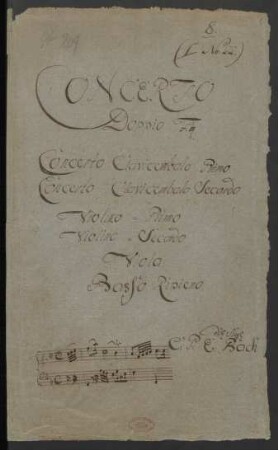 8
CONCERTO
Doppio
Concerto Clavicembalo Primo
Concerto Clavicembalo Secondo
Violino Primo
Violino Secondo
Viola
Basso Ripieno
C. P. E. Bach